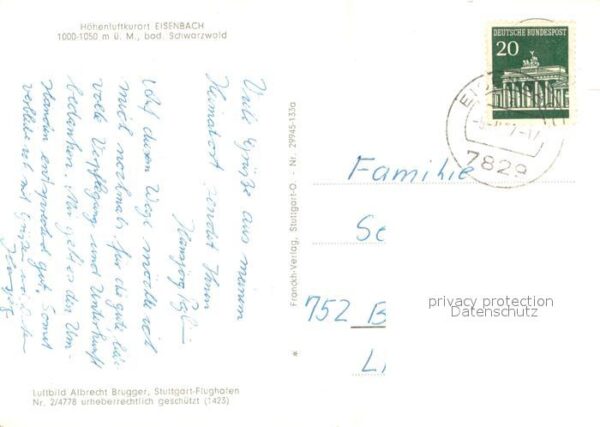 Höhenluftkurort EISENBACH
1000-1050 m ü. M., bad. Schwarzwald
Viele Grüße aus meinem
Heimatort sendet Ihnen
Hansjörg
Auf diesem Wege möchte ich
mich nochmals für die gute
volle Verpflegung und Unterkunft
bedanken. Mir geht es den Um-
ständen entsprechend gut. Somit
verbleibe ich mit Grüßen
Luftbild Albrecht Brugger, Stuttgart-Flughafen
Nr. 2/4778 urheberrechtlich geschützt (1423)
Franckh-Verlag, Stuttgart-O. - Nr. 29945-133a
*
DEUTSCHE BUNDESPOST
20
7829
Familie
Se
752 B
L
privacy protection
Datenschutz